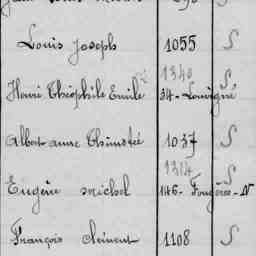 Louis Joseph 1055 S
1340
Henri Théophile Emile 34 - Louvigné S
Albert anne Thimoté 1037 S
1314
Eugène Michel 146 - Fougères - N S
François Clément 1108 S